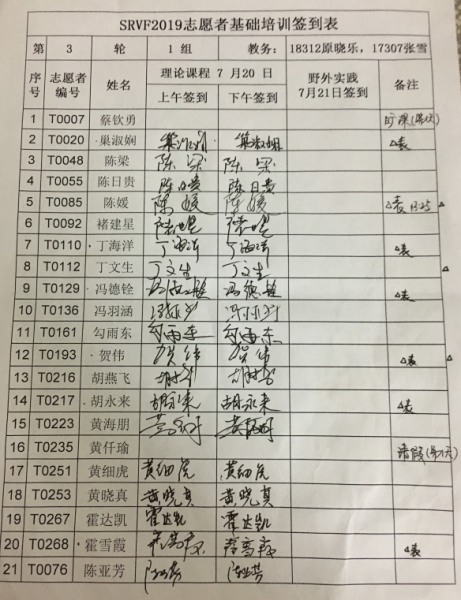 SRVF2019志愿者基础培训签到表
第 3 轮 1 组 教务: 18312原晓乐, 17307张雪
序号 志愿者编号 姓名 理论课程 7 月 20 日 野外实践 7月21日签到 备注
上午签到 下午签到
1 T0007 蔡钦勇 旷课
2 T0020 ·巢淑娴 巢淑娴 巢淑娴 △表
3 T0048 陈梁 陈梁 陈梁
4 T0055 陈日贵 陈日贵 陈日贵
5 T0085 陈媛 陈媛 陈媛 △表
6 T0092 褚建星
7 T0110 ·丁海洋 丁海洋 丁海洋 △表
8 T0112 丁文生 丁文生 丁文生 △
9 T0129 ·冯德铨 冯德铨 冯德铨 △表
10 T0136 冯羽涵
11 T0161 勾雨东 勾雨东 勾雨东
12 T0193 ·贺伟 贺伟 贺伟 △表 △
13 T0216 胡燕飞
14 T0217 ·胡永来 胡永来 胡永来 △表
15 T0223 黄海朋
16 T0235 黄仟瑜 请假
17 T0251 黄细虎 黄细虎 黄细虎
18 T0253 黄晓真 黄晓真 黄晓真
19 T0267 霍达凯 霍达凯 霍达凯
20 T0268 ·霍雪霞 △表
21 T0076 陈亚芳 陈亚芳 陈亚芳